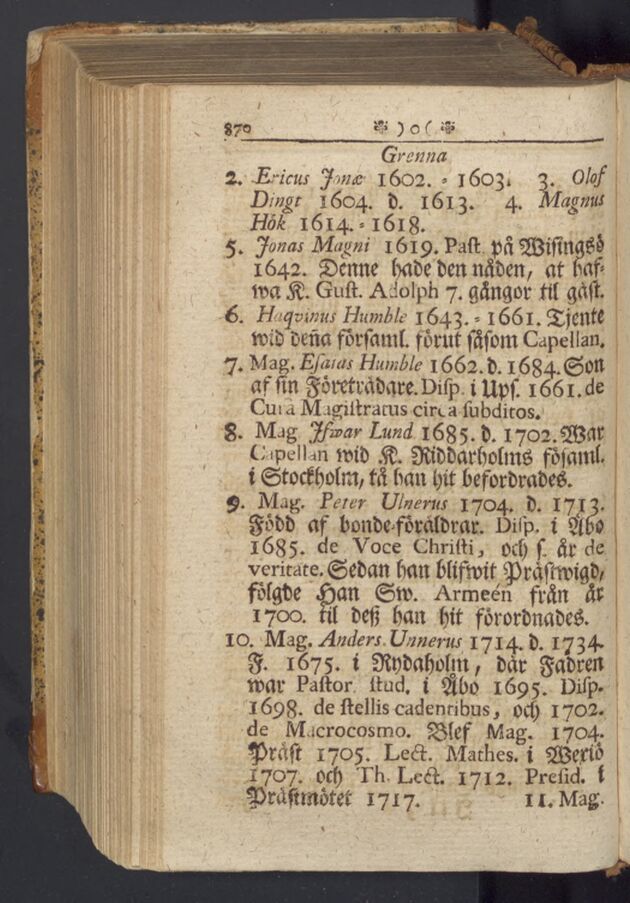 870 ) o (
Grenna
2. Ericus Jonæ 1602. - 1603. 3. Olof
Dingt 1604. d. 1613. 4. Magnus
Hök 1614. - 1618.
5. Jonas Magni 1619. Past. på Wisingsö
1642. Denne hade den nåden, at haf-
wa K. Gust. Adolph 7. gångor til gäst.
6. Haqvinus Humble 1643. - 1661. Tjente
wid deña församl. förut såsom Capellan.
7. Mag. Esaias Humble 1662. d. 1684. Son
af sin Företrädare. Disp. i Ups. 1661. de
Cura Magistratus circa subditos.
8. Mag Ifwar Lund 1685. d. 1702. War
Capellan wid K. Riddarholms fösaml.
i Stockholm, tå han hit befordrades.
9. Mag. Peter Ulnerus 1704. d. 1713.
Född af bonde-föräldrar. Disp. i Åbo
1685. de Voce Christi, och s. år de
veritate. Sedan han blifwit Prästwigd,
fölgde Han Sw. Armeén från år
1700. til deß han hit förordnades.
10. Mag. Anders Unnerus 1714. d. 1734.
F. 1675. i Rydaholm, där Fadren
war Pastor. stud. i Åbo 1695. Disp.
1698. de stellis cadentibus, och 1702.
de Macrocosmo. Blef Mag. 1704.
Präst 1705. Lect. Mathes. i Wexiö
1707. och Th. Lect. 1712. Presid. i
Prästmötet 1717. 11. Mag.